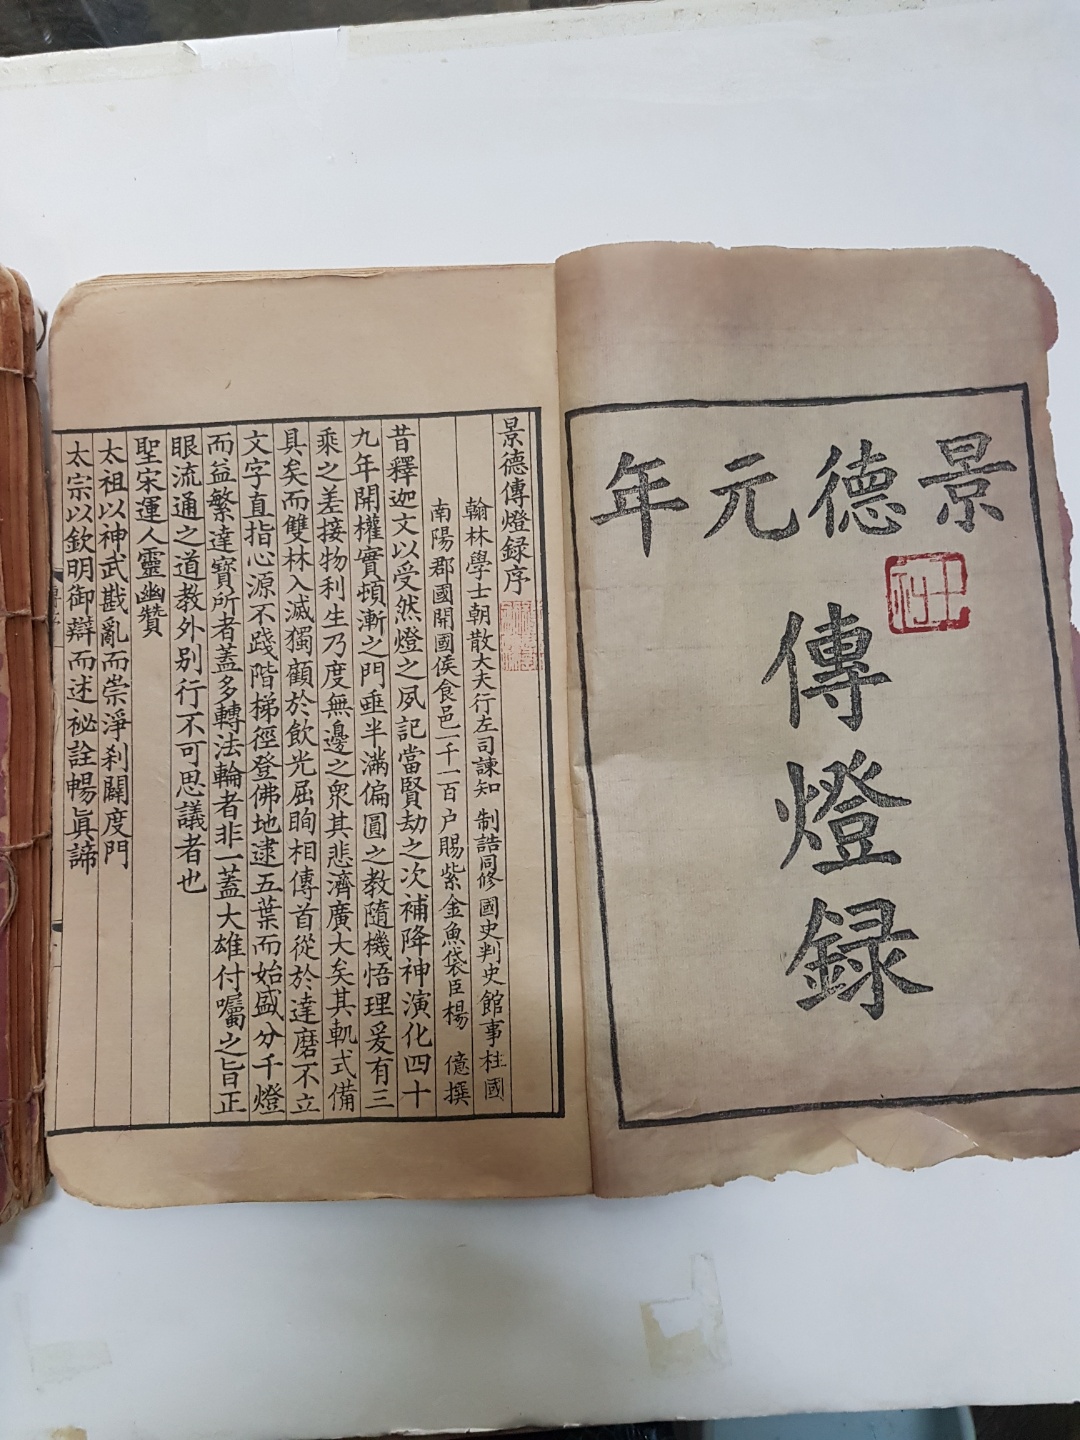 景德元年
傳燈録
景德傳燈録序
翰林學士朝散大夫行左司諫知 制誥同修 國史判史館事柱國
南陽郡國開國侯食邑一千一百户賜紫金魚袋臣楊 億撰
昔釋迦文以受然燈之夙記當賢劫之次補降神演化四十
九年開權實頓漸之門垂半滿偏圓之教隨機悟理爰有三
乘之差接物利生乃度無邊之衆其悲濟廣大矣其軌式備
具矣而雙林入滅獨顧於飲光屈眴相傳首從於達磨不立
文字直指心源不踐階梯徑登佛地逮五葉而始盛分千燈
而益繁達寶所者蓋多轉法輪者非一蓋大雄付囑之旨正
眼流通之道教外别行不可思議者也
聖宋運人靈幽贊
太祖以神武戡亂而崇淨刹闢度門
太宗以欽明御辯而述祕詮暢眞諦